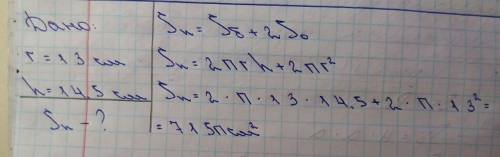 Дано:
r = 13 см
h = 14,5 см
Sп - ?
Sп = Sб + 2So
Sп = 2πrh + 2πr²
Sп = 2 · π · 13 · 14,5 + 2 · π · 13² =
= 715π см²